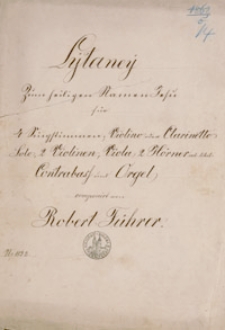 Lytaney
Zum heiligen Namen Jesu
für
4 Singstimmen, Violino oder Clarinetto
Solo, 2 Violinen, Viola, 2 Hörner
Contrabaß und Orgel,
componirt von
Robert Führer.